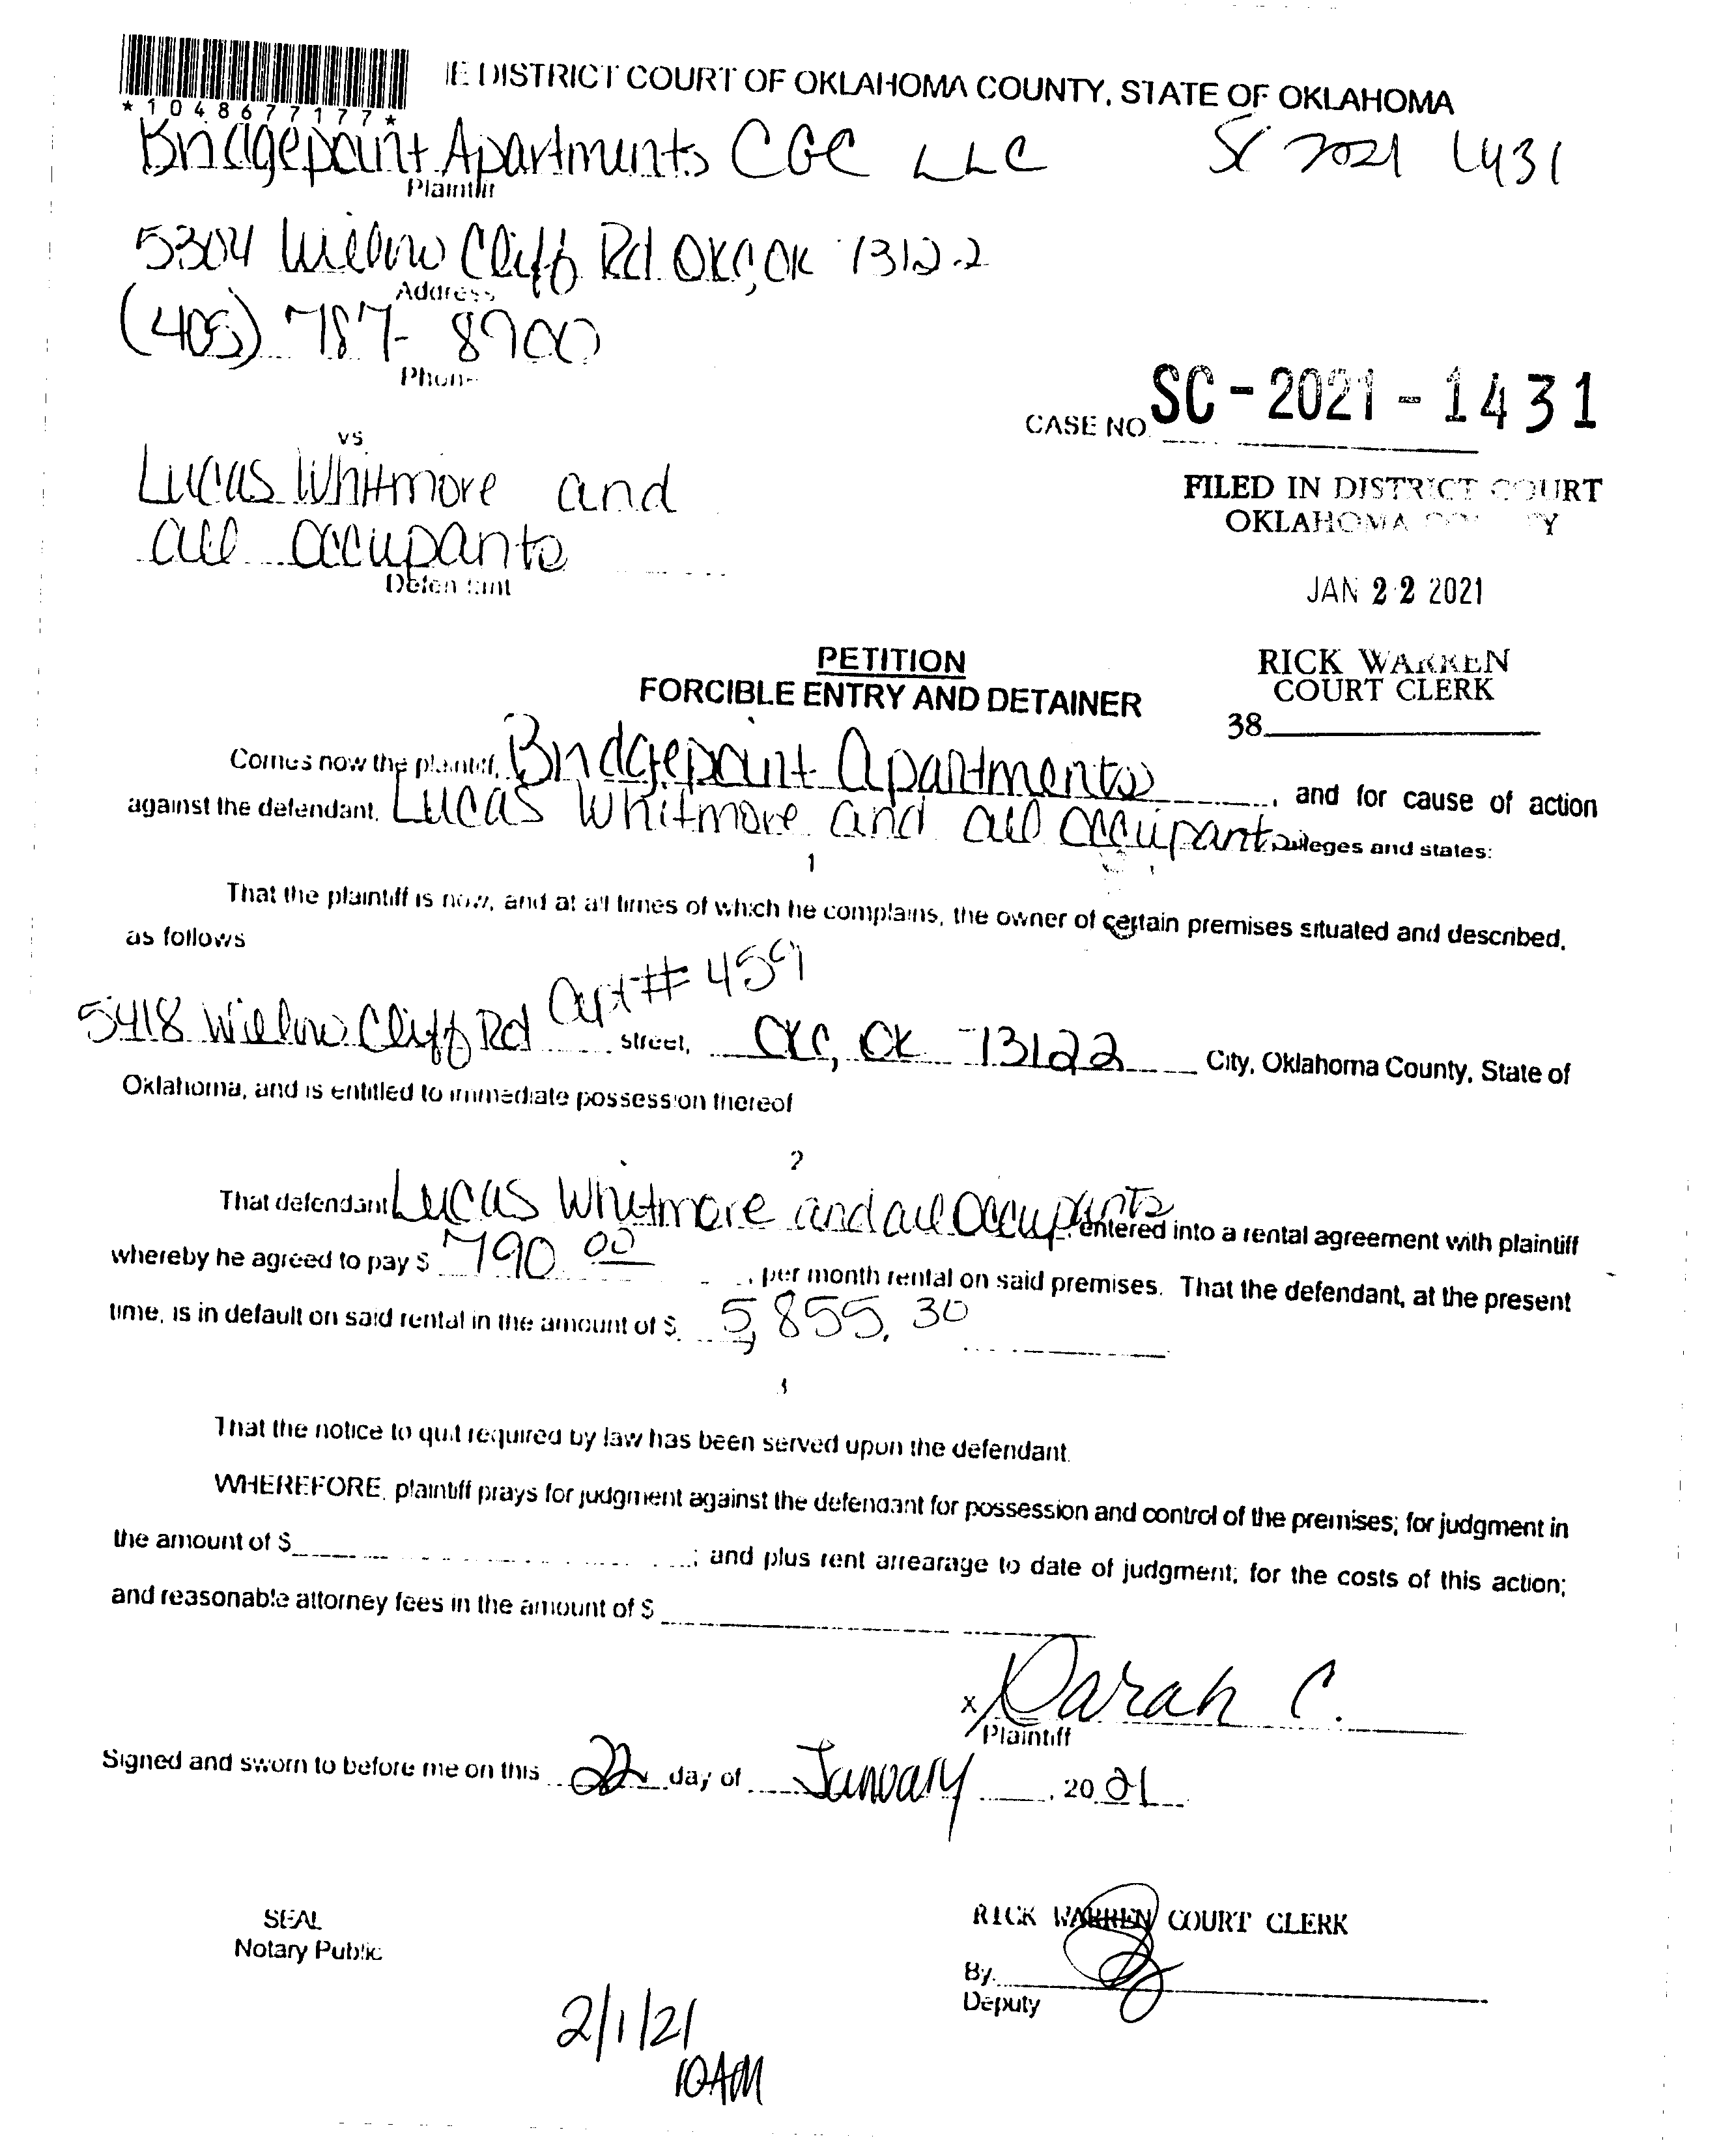 *1048677177*
E DISTRICT COURT OF OKLAHOMA COUNTY, STATE OF OKLAHOMA
Bridgepoint Apartments CGC LLC SC 2021 1431
Plaintiff
5304 Willow Cliff Rd OKC, OK 73122
Address
(405) 787-8900
Phone
CASE NO. SC-2021-1431
vs
Lucas Whitmore and
all occupants
Defendant
FILED IN DISTRICT COURT
OKLAHOMA COUNTY
JAN 22 2021
RICK WARREN
COURT CLERK
38
PETITION
FORCIBLE ENTRY AND DETAINER
Comes now the plaintiff, Bridgepoint Apartments, and for cause of action
against the defendant, Lucas Whitmore and all occupants alleges and states:
1
That the plaintiff is now, and at all times of which he complains, the owner of certain premises situated and described,
as follows
5418 Willow Cliff Rd Apt# 459 street, OKC, OK 73122 City, Oklahoma County, State of
Oklahoma, and is entitled to immediate possession thereof
2
That defendant Lucas Whitmore and all Occupants entered into a rental agreement with plaintiff
whereby he agreed to pay $ 790 00, per month rental on said premises. That the defendant, at the present
time, is in default on said rental in the amount of $ 5,855.30
3
That the notice to quit required by law has been served upon the defendant.
WHEREFORE, plaintiff prays for judgment against the defendant for possession and control of the premises; for judgment in
the amount of $ ; and plus rent arrearage to date of judgment; for the costs of this action;
and reasonable attorney fees in the amount of $
x Sarah C.
Plaintiff
Signed and sworn to before me on this 22 day of January, 2021
SEAL
Notary Public
RICK WARREN COURT CLERK
By.
Deputy
2/1/21
10AM